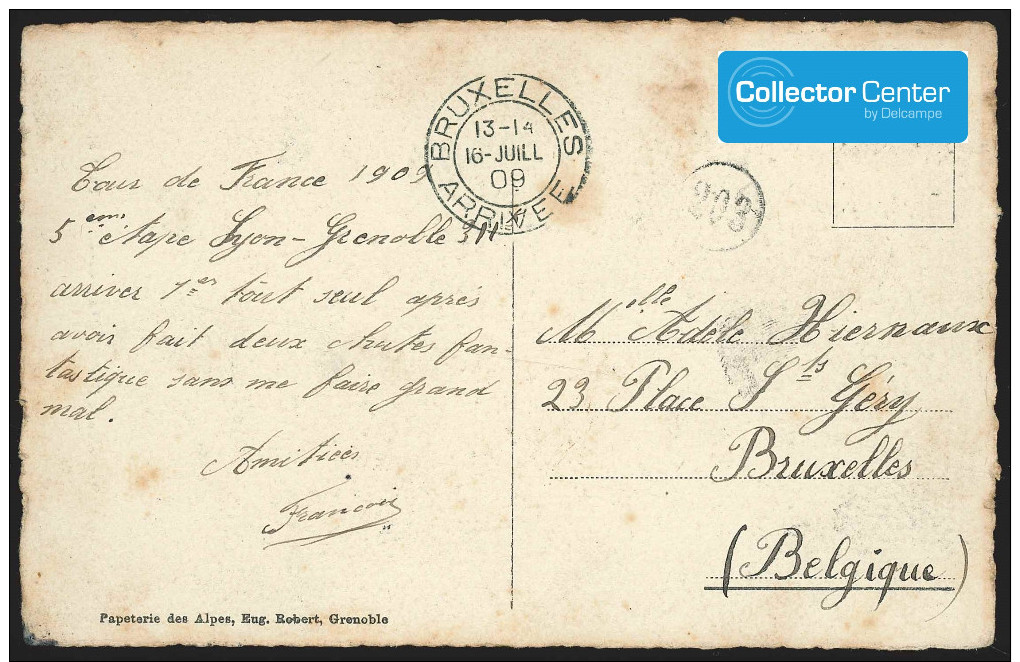 Collector Center
by Delcampe
BRUXELLES
13-14
16-JUILL
09
ARRIVEE
203
Tour de France 1909
5ème étape Lyon-Grenoble
arriver 1er tout seul après
avoir fait deux chutes fan-
tastique sans me faire grand
mal.
Amitiées
François
Melle Adèle Hiernaux
23 Place St Géry
Bruxelles
(Belgique)
Papeterie des Alpes, Eug. Robert, Grenoble